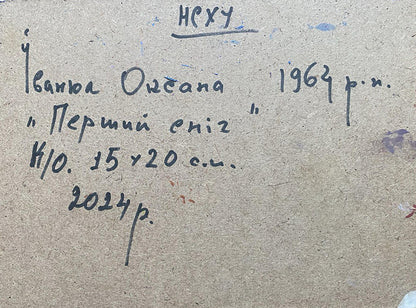 НСХУ
Іванюк Оксана 1964 р.н.
"Перший сніг"
К/О. 15×20 с.м.
2024 р.